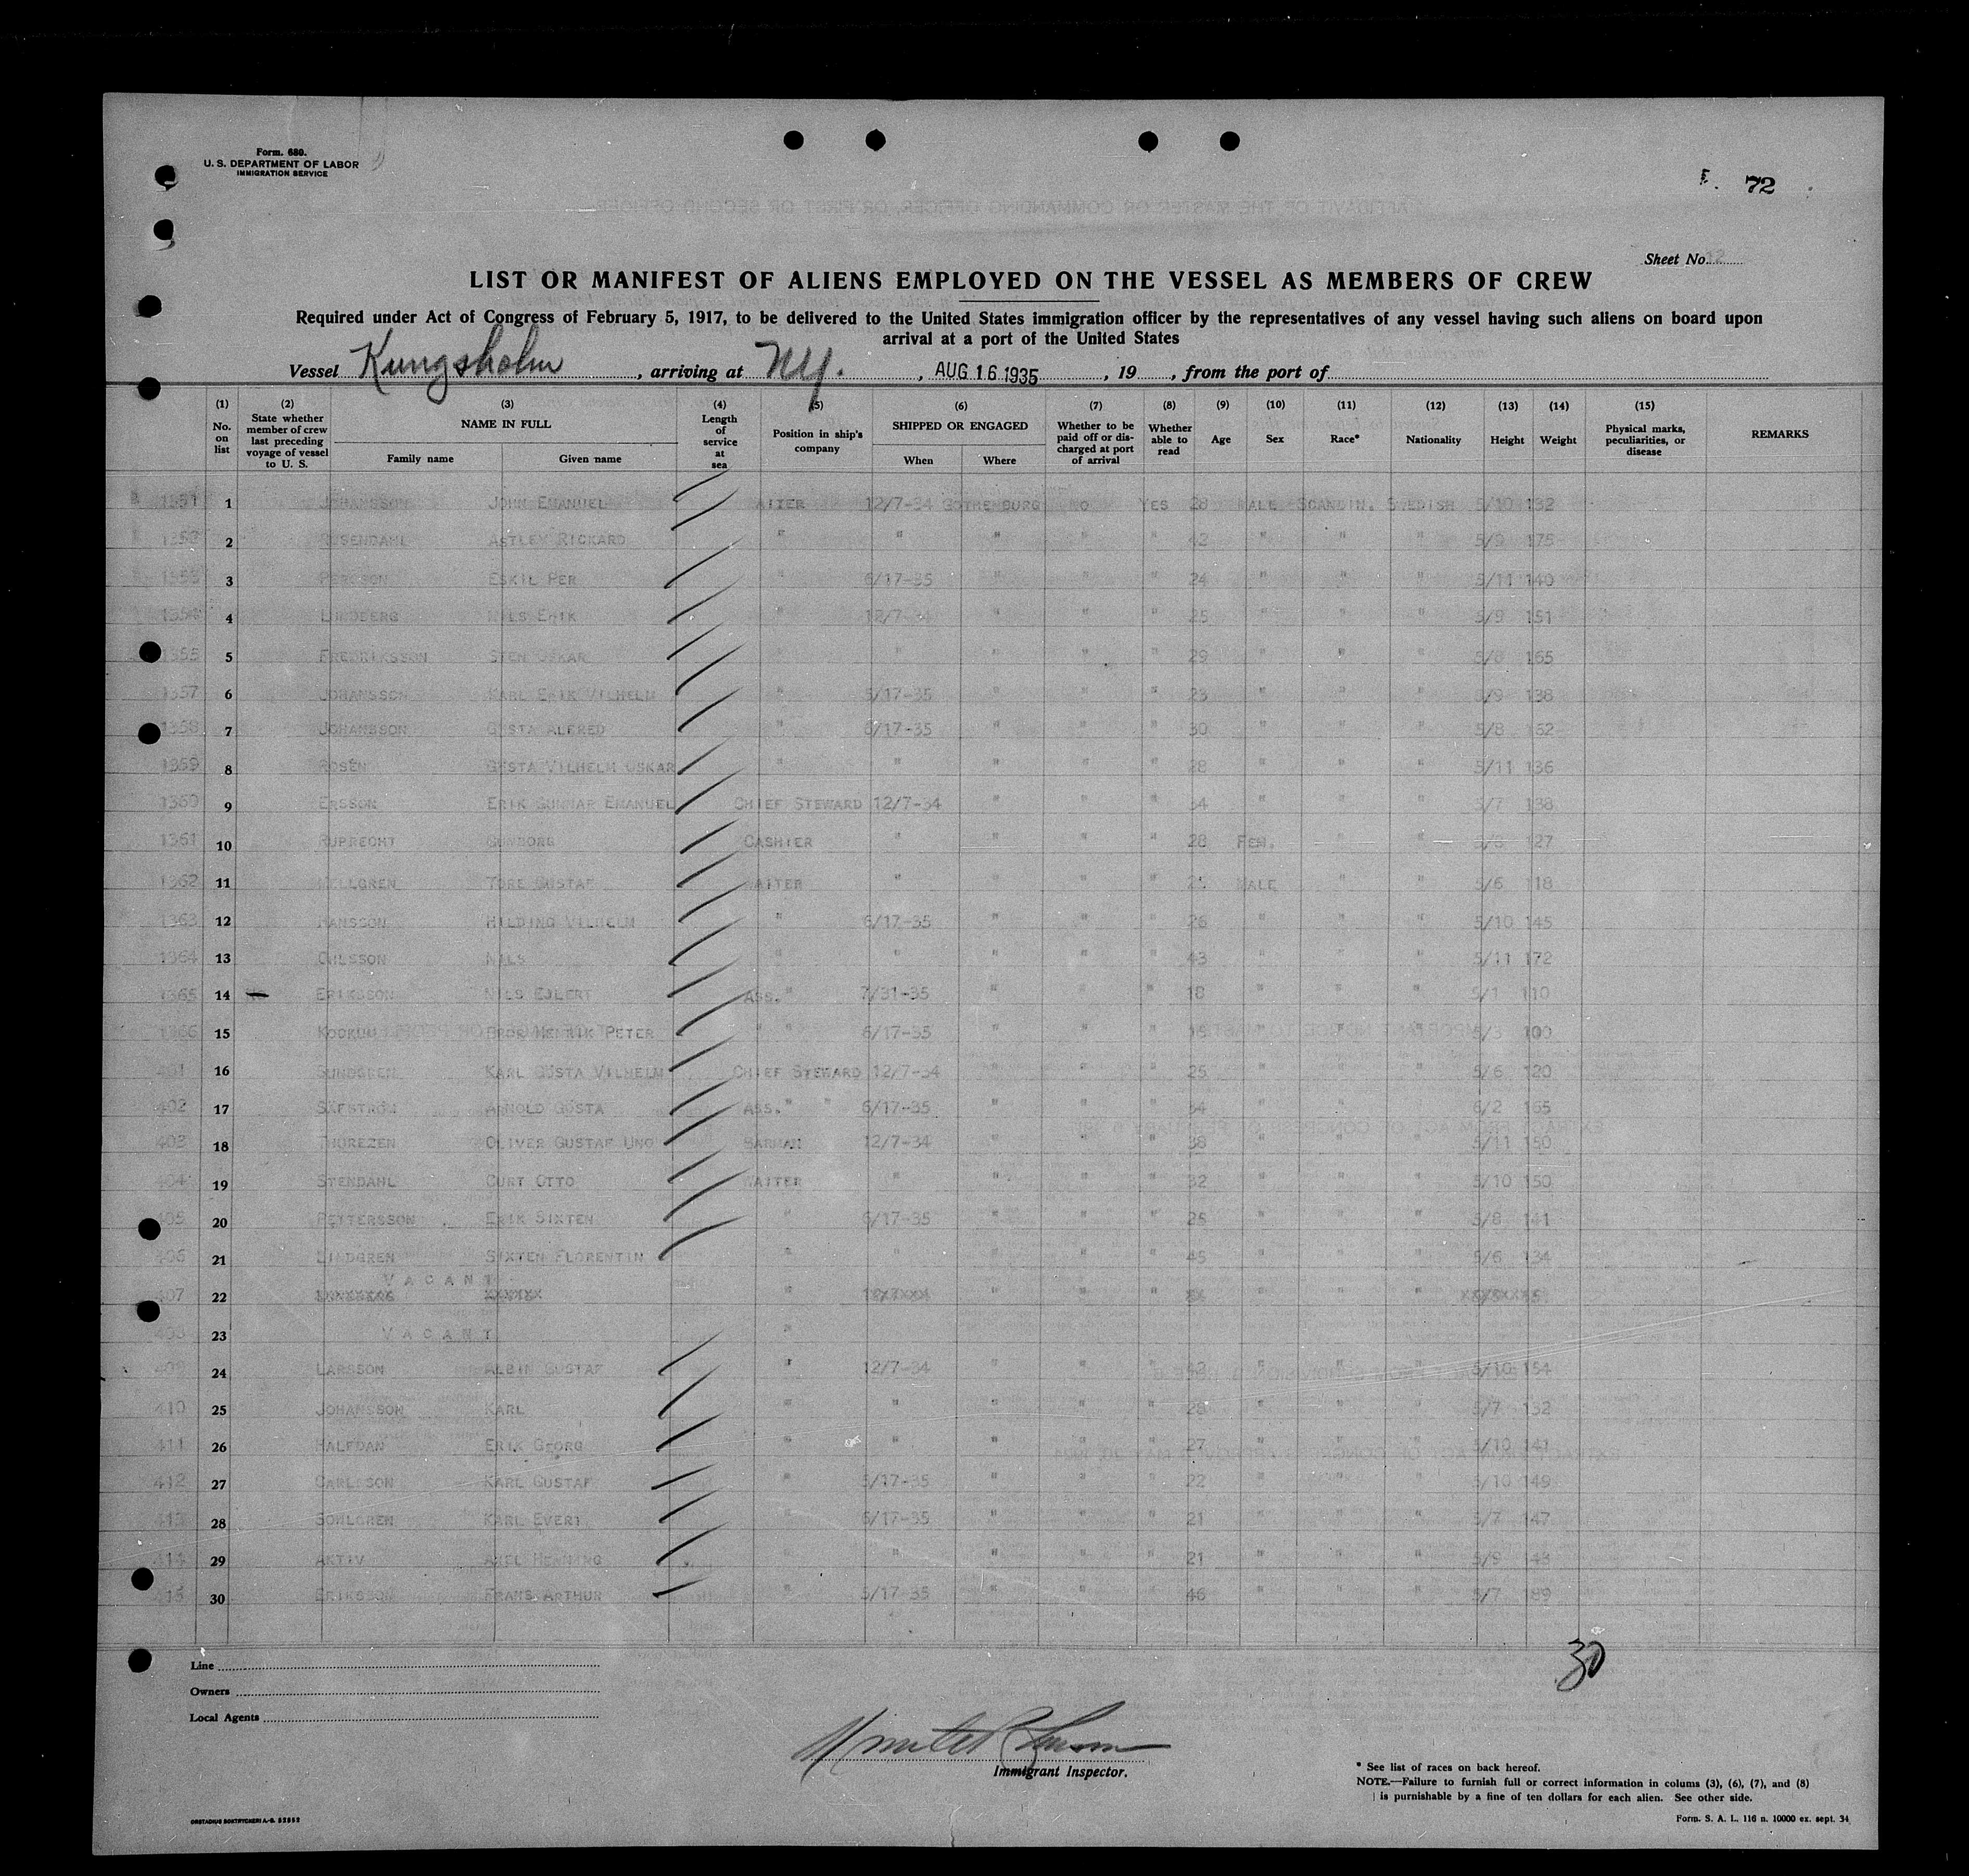 Form. 680.
U. S. DEPARTMENT OF LABOR
IMMIGRATION SERVICE
72
Sheet No. 12
LIST OR MANIFEST OF ALIENS EMPLOYED ON THE VESSEL AS MEMBERS OF CREW
Required under Act of Congress of February 5, 1917, to be delivered to the United States immigration officer by the representatives of any vessel having such aliens on board upon
arrival at a port of the United States
Vessel Kungsholm, arriving at NY., AUG 16 1935, 19 , from the port of
(1) No. on list (2) State whether member of crew last preceding voyage of vessel to U. S. (3) NAME IN FULL Family name Given name (4) Length of service at sea (5) Position in ship's company (6) SHIPPED OR ENGAGED When Where (7) Whether to be paid off or discharged at port of arrival (8) Whether able to read (9) Age (10) Sex (11) Race* (12) Nationality (13) Height (14) Weight (15) Physical marks, peculiarities, or disease REMARKS
1351 1 JOHANSSON JOHN EMANUEL WAITER 12/7-34 GOTHENBURG NO YES 28 MALE SCANDIN. SWEDISH 5/10 132
2 ROSENDAHL ASTLEY RICKARD " " " " " 42 " " " 5/9 175
1353 3 PERSSON ESKIL PER " 6/17-35 " " " 24 " " " 5/11 140
1354 4 LUNDBERG NILS ERIK " 12/7-34 " " " 25 " " " 5/9 151
1355 5 FREDRIKSSON STEN OSKAR " " " " " 29 " " " 5/8 165
1357 6 JOHANSSON KARL ERIK VILHELM " 5/17-35 " " " 23 " " " 5/9 138
1358 7 JOHANSSON GÖSTA ALFRED " 6/17-35 " " " 30 " " " 5/8 162
1359 8 ROSÉN GÖSTA VILHELM OSKAR " " " " " 28 " " " 5/11 136
1360 9 ERSSON ERIK GUNNAR EMANUEL CHIEF STEWARD 12/7-34 " " " 34 " " " 5/7 138
1361 10 RUPRECHT GUNBORG CASHIER " " " " 28 FEM. " " 127
1362 11 TORE GUSTAF WAITER " " " " MALE " " 5/6 118
1363 12 HANSSON HILDING VILHELM " 6/17-35 " " " 26 " " " 5/10 145
1364 13 OHLSSON NILS " " " " " 43 " " " 5/11 172
1365 14 ERIKSSON NILS EJLERT ASS." 7/31-35 " " " 18 " " " 5/1 110
1366 15 KOCKUM BROR HENRIK PETER " " 6/17-35 " " " " " " 5/3 100
401 16 SUNDGREN KARL GÖSTA VILHELM CHIEF STEWARD 12/7-34 " " " 25 " " " 5/6 120
402 17 SÄFSTRÖM ARNOLD GÖSTA ASS." " 6/17-35 " " " 34 " " " 6/2 165
403 18 THUREZEN OLIVER GUSTAF UNO BARMAN 12/7-34 " " " 38 " " " 5/11 150
404 19 STENDAHL CURT OTTO WAITER " " " " 32 " " " 5/10 150
405 20 PETTERSSON ERIK SIXTEN " 6/17-35 " " " 25 " " " 5/8 141
406 21 LINDGREN SIXTEN FLORENTIN " " " " " 45 " " " 5/6 134
VACANT
407 22 " " " " " " "
408 23 VACANT "
409 24 LARSSON ALBIN GUSTAF " 12/7-34 " " " 42 " " " 5/10 154
410 25 JOHANSSON KARL " " " " " 28 " " " 5/7 132
411 26 HALFDAN ERIK GEORG " " " " " 27 " " " 5/10 141
412 27 CARLSSON KARL GUSTAF " 5/17-35 " " " 22 " " " 5/10 149
413 28 SOHLGREN KARL EVERT " 6/17-35 " " " 21 " " " 5/7 147
414 29 AKTIV AXEL HENNING " " " " " 21 " " " 5/9 143
415 30 ERIKSSON FRANS ARTHUR " 5/17-35 " " " 46 " " " 5/7 189
30
Line
Owners
Local Agents
Immigrant Inspector.
* See list of races on back hereof.
NOTE.—Failure to furnish full or correct information in colums (3), (6), (7), and (8)
is punishable by a fine of ten dollars for each alien. See other side.
Form. S. A. L. 116 n. 10000 ex. sept. 34